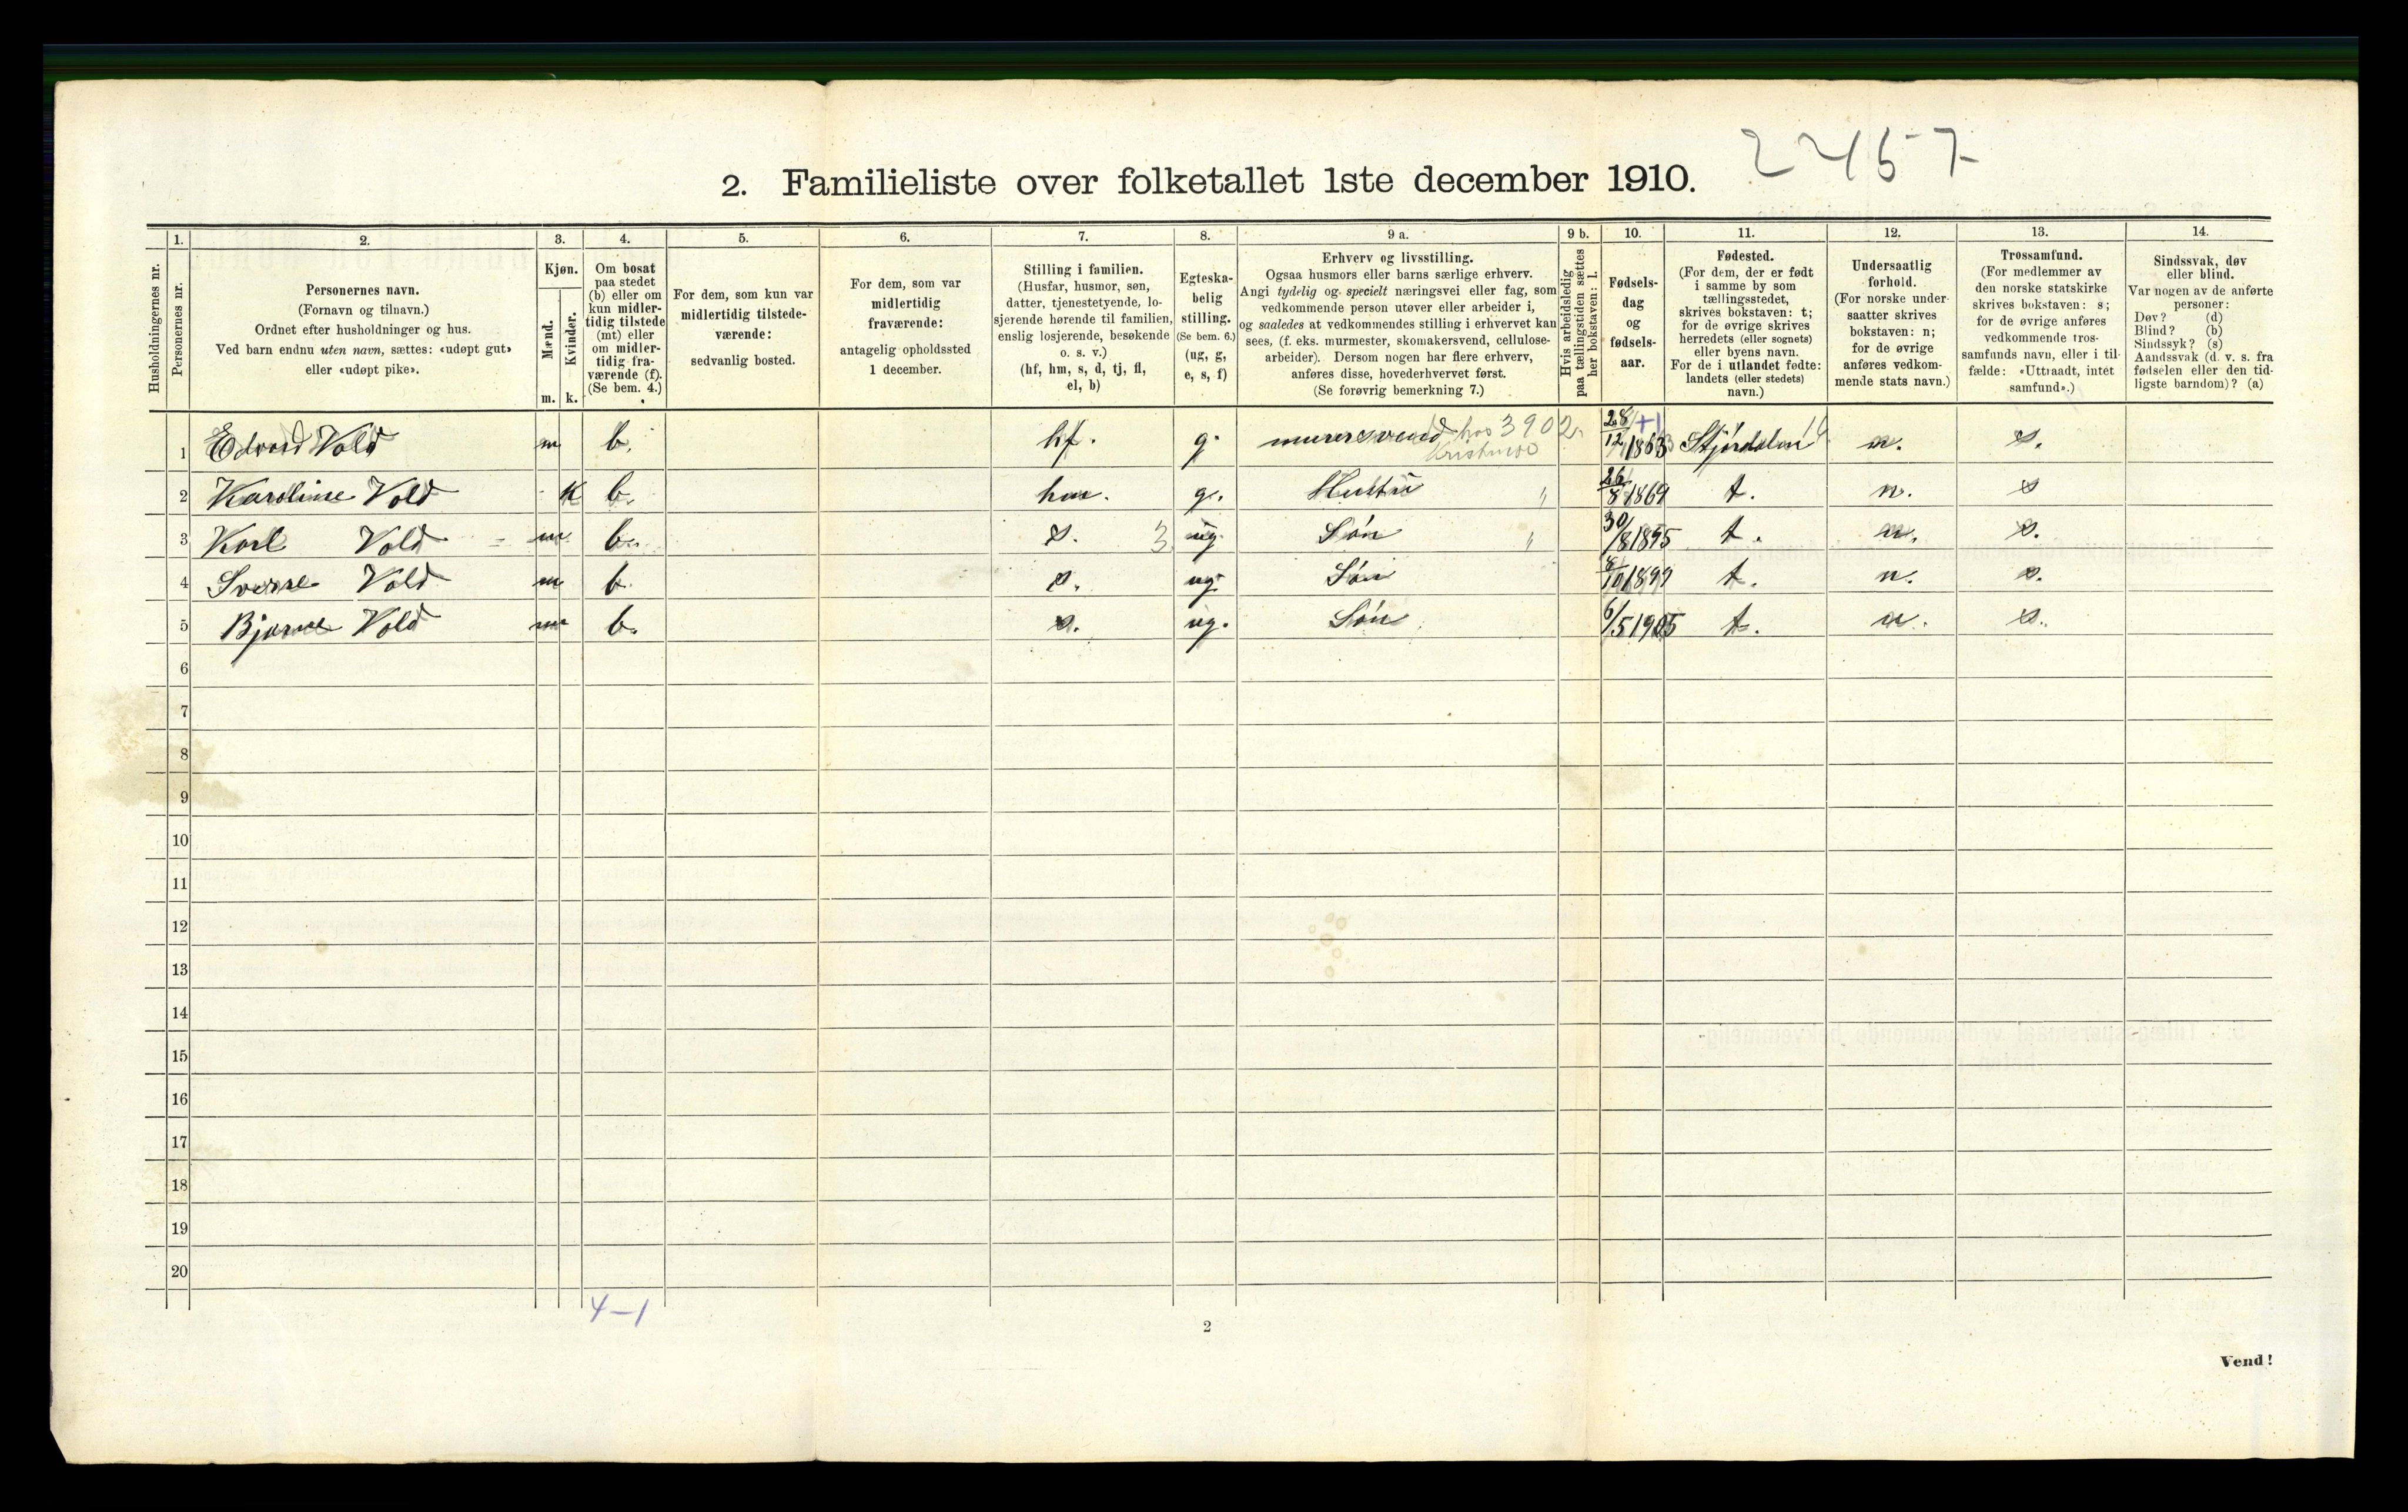 2457
2. Familieliste over folketallet 1ste december 1910.
1. 2. 3. 4. 5. 6. 7. 8. 9 a. 9 b. 10. 11. 12. 13. 14.
Husholdningernes nr.
Personernes nr.
Personernes navn.
(Fornavn og tilnavn.)
Ordnet efter husholdninger og hus.
Ved barn endnu uten navn, sættes: «udøpt gut»
eller «udøpt pike».
Kjøn.
Mænd.
Kvinder.
m. k.
Om bosat
paa stedet
(b) eller om
kun midler-
tidig tilstede
(mt) eller
om midler-
tidig fra-
værende (f).
(Se bem. 4.)
For dem, som kun var
midlertidig tilstede-
værende:
sedvanlig bosted.
For dem, som var
midlertidig
fraværende:
antagelig opholdssted
1 december.
Stilling i familien.
(Husfar, husmor, søn,
datter, tjenestetyende, lo-
sjerende hørende til familien,
enslig losjerende, besøkende
o. s. v.)
(hf, hm, s, d, tj, fl,
el, b)
Egteska-
belig
stilling.
(Se bem. 6.)
(ug, g,
e, s, f)
Erhverv og livsstilling.
Ogsaa husmors eller barns særlige erhverv.
Angi tydelig og specielt næringsvei eller fag, som
vedkommende person utøver eller arbeider i,
og saaledes at vedkommendes stilling i erhvervet kan
sees, (f. eks. murmester, skomakersvend, cellulose-
arbeider). Dersom nogen har flere erhverv,
anføres disse, hovederhvervet først.
(Se forøvrig bemerkning 7.)
Hvis arbeidsledig
paa tællingstiden sættes
her bokstaven: l.
Fødsels-
dag
og
fødsels-
aar.
Fødested.
(For dem, der er født
i samme by som
tællingsstedet,
skrives bokstaven: t;
for de øvrige skrives
herredets (eller sognets)
eller byens navn.
For de i utlandet fødte:
landets (eller stedets)
navn.)
Undersaatlig
forhold.
(For norske under-
saatter skrives
bokstaven: n;
for de øvrige
anføres vedkom-
mende stats navn.)
Trossamfund.
(For medlemmer av
den norske statskirke
skrives bokstaven: s;
for de øvrige anføres
vedkommende tros-
samfunds navn, eller i til-
fælde: «Uttraadt, intet
samfund».)
Sindssvak, døv
eller blind.
Var nogen av de anførte
personer:
Døv? (d)
Blind? (b)
Sindssyk? (s)
Aandssvak (d. v. s. fra
fødselen eller den tid-
ligste barndom)? (a)
1 Edvard Vold m b. hf. g. murersvend hos 3902 28/12 1863 +1 Stjørdalen n. s.
2 Karoline Vold k b. hm. g. Hustru " 26/8 1869 t. n. s
3 Karl Vold m b. s. 3 ug Søn " 30/8 1895 t. n. s.
4 Sverre Vold m b. s. ug Søn 8/10 1899 t. n. s.
5 Bjarne Vold m b. s. ug. Søn 6/5 1905 t. n. s.
6
7
8
9
10
11
12
13
14
15
16
17
18
19
20
4-1
2
Vend!